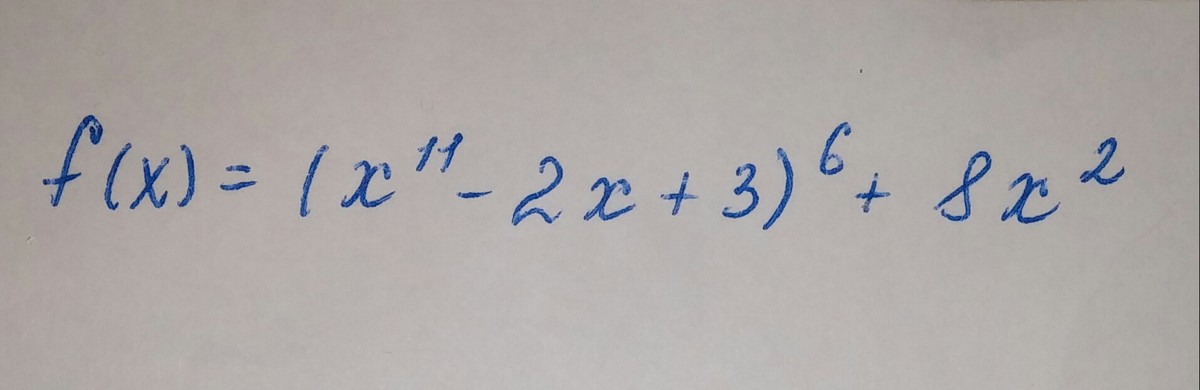 f(x) = (x¹¹ - 2x + 3)⁶ + 8x²